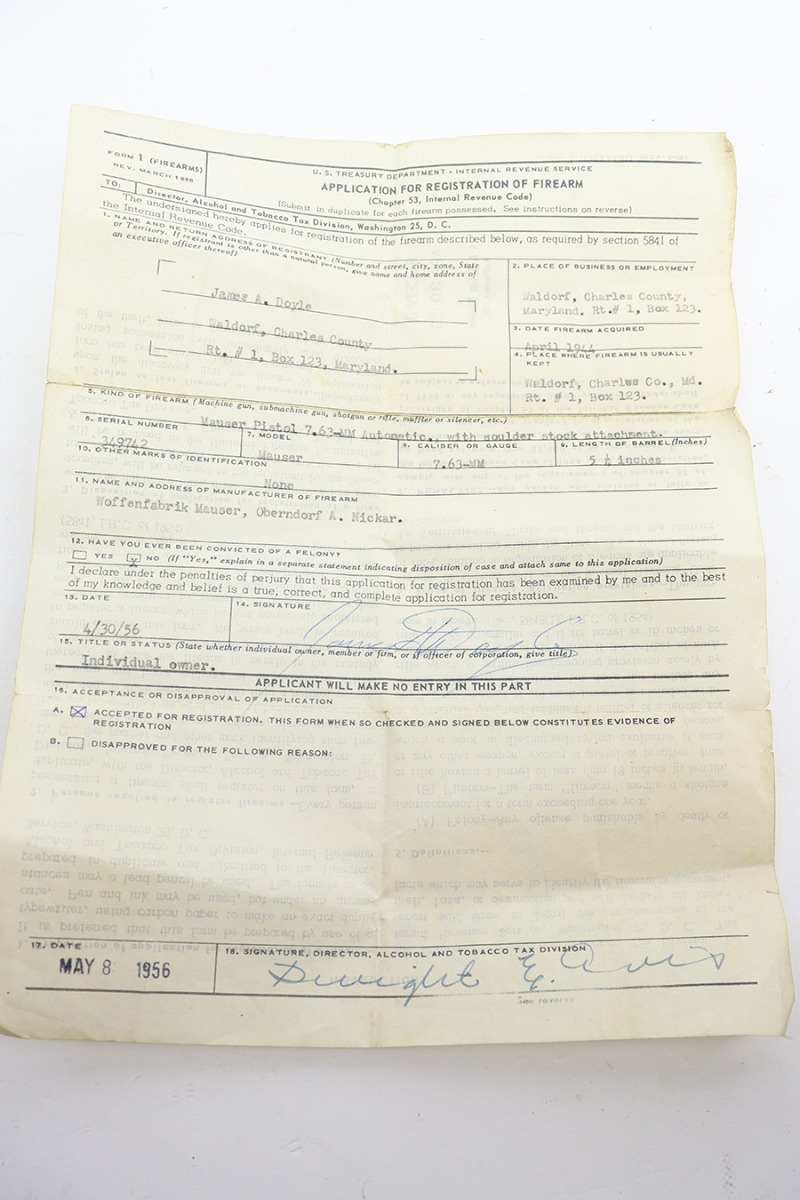 FORM 1 (FIREARMS)
REV. MARCH 1955
U. S. TREASURY DEPARTMENT - INTERNAL REVENUE SERVICE
APPLICATION FOR REGISTRATION OF FIREARM
(Chapter 53, Internal Revenue Code)
(Submit in duplicate for each firearm possessed. See instructions on reverse)
TO:
Director, Alcohol and Tobacco Tax Division, Washington 25, D. C.
The undersigned hereby applies for registration of the firearm described below, as required by section 5841 of
the Internal Revenue Code.
1. NAME AND RETURN ADDRESS OF REGISTRANT (Number and street, city, zone, State
or Territory. If registrant is other than a natural person, give name and home address of
an executive officer thereof)
James A. Doyle
Waldorf, Charles County
Rt. # 1, Box 123, Maryland.
2. PLACE OF BUSINESS OR EMPLOYMENT
Waldorf, Charles County,
Maryland. Rt.# 1, Box 123.
3. DATE FIREARM ACQUIRED
April 1944
4. PLACE WHERE FIREARM IS USUALLY
KEPT
Waldorf, Charles Co., Md.
Rt. # 1, Box 123.
5. KIND OF FIREARM (Machine gun, submachine gun, shotgun or rifle, muffler or silencer, etc.)
Mauser Pistol 7.63-MM Automatic., with soulder stock attachment.
6. SERIAL NUMBER
349742
7. MODEL
Mauser
8. CALIBER OR GAUGE
7.63-MM
9. LENGTH OF BARREL (Inches)
5 ½ inches
10. OTHER MARKS OF IDENTIFICATION
None
11. NAME AND ADDRESS OF MANUFACTURER OF FIREARM
Woffenfabrik Mauser, Oberndorf A. Nickar.
12. HAVE YOU EVER BEEN CONVICTED OF A FELONY?
YES x NO (If "Yes," explain in a separate statement indicating disposition of case and attach same to this application)
I declare under the penalties of perjury that this application for registration has been examined by me and to the best
of my knowledge and belief is a true, correct, and complete application for registration.
13. DATE
4/30/56
14. SIGNATURE
James A Doyle
15. TITLE OR STATUS (State whether individual owner, member or firm, or if officer of corporation, give title)
Individual owner.
APPLICANT WILL MAKE NO ENTRY IN THIS PART
16. ACCEPTANCE OR DISAPPROVAL OF APPLICATION
A. X ACCEPTED FOR REGISTRATION. THIS FORM WHEN SO CHECKED AND SIGNED BELOW CONSTITUTES EVIDENCE OF
REGISTRATION
B. DISAPPROVED FOR THE FOLLOWING REASON:
17. DATE
MAY 8 1956
18. SIGNATURE, DIRECTOR, ALCOHOL AND TOBACCO TAX DIVISION
Dwight E. Avis
See reverse